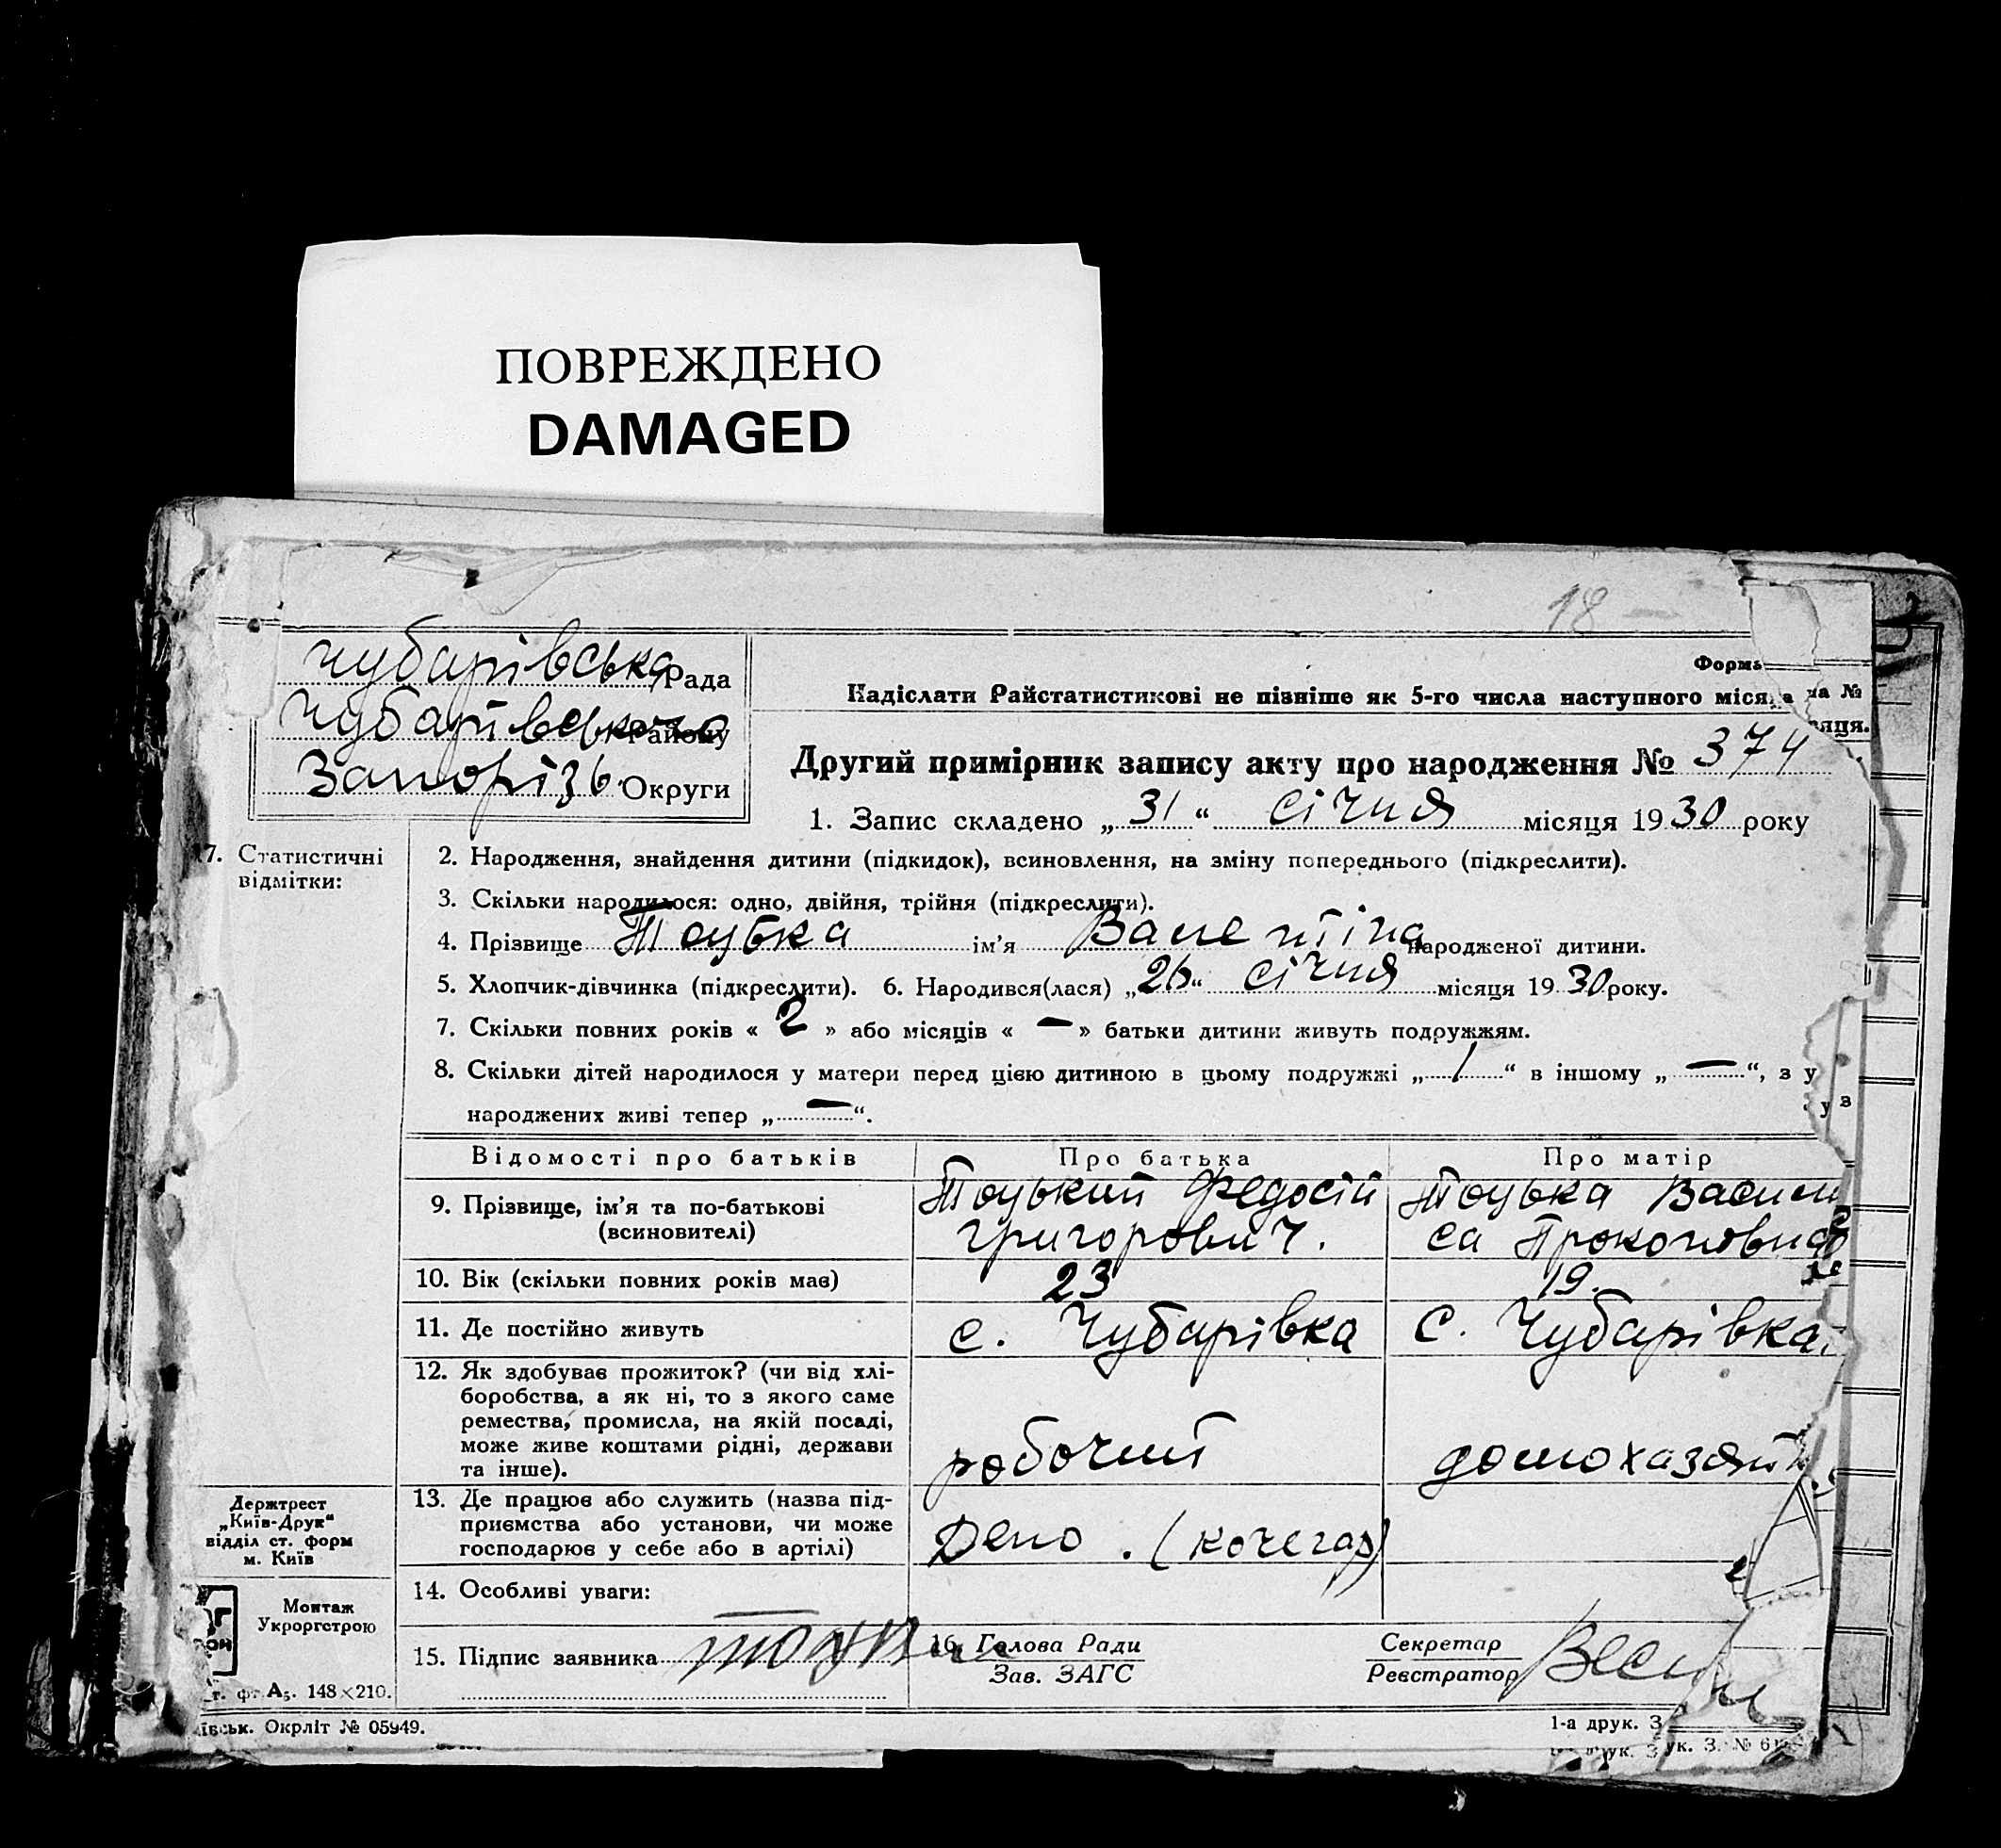 ПОВРЕЖДЕНО
DAMAGED
18 —
Чубарівська Рада
Чубарівського Району
Запорізь. Округи
Форма
Надіслати Райстатистикові не пізніше як 5-го числа наступного місяця
на №
яця.
Другий примірник запису акту про народження № 374
1. Запис складено „31“ січня місяця 1930 року
17. Статистичні відмітки:
2. Народження, знайдення дитини (підкидок), всиновлення, на зміну попереднього (підкреслити).
3. Скільки народилося: одно, двійня, трійня (підкреслити).
4. Прізвище ім'я Валентіна народженої дитини.
5. Хлопчик-дівчинка (підкреслити). 6. Народився(лася) „26“ січня місяця 1930 року.
7. Скільки повних років « 2 » або місяців « — » батьки дитини живуть подружжям.
8. Скільки дітей народилося у матери перед цією дитиною в цьому подружжі „1“ в іншому „—“, з у
народжених живі тепер „—“.
Відомості про батьків Про батька Про матір
9. Прізвище, ім'я та по-батькові
(всиновителі)
Федосій
Григорович.
Васили
са Прокоповна
10. Вік (скільки повних років має) 23 19.
11. Де постійно живуть с. Чубарівка с. Чубарівка.
12. Як здобуває прожиток? (чи від хлі-
боробства, а як ні, то з якого саме
ремества, промисла, на якій посаді,
може живе коштами рідні, держави
та інше).
робочий домохазяй
13. Де працює або служить (назва під-
приємства або установи, чи може
господарює у себе або в артілі)
Депо . (кочегар)
14. Особливі уваги:
15. Підпис заявника
16. Голова Ради
Зав. ЗАГС
Секретар
Реєстратор
Держтрест
„Київ-Друк“
відділ ст. форм
м. Київ
Монтаж
Укроргстрою
т. ф. А5. 148×210.
ївськ. Окрліт № 05949.
1-а друк. З
ук. З. № 61